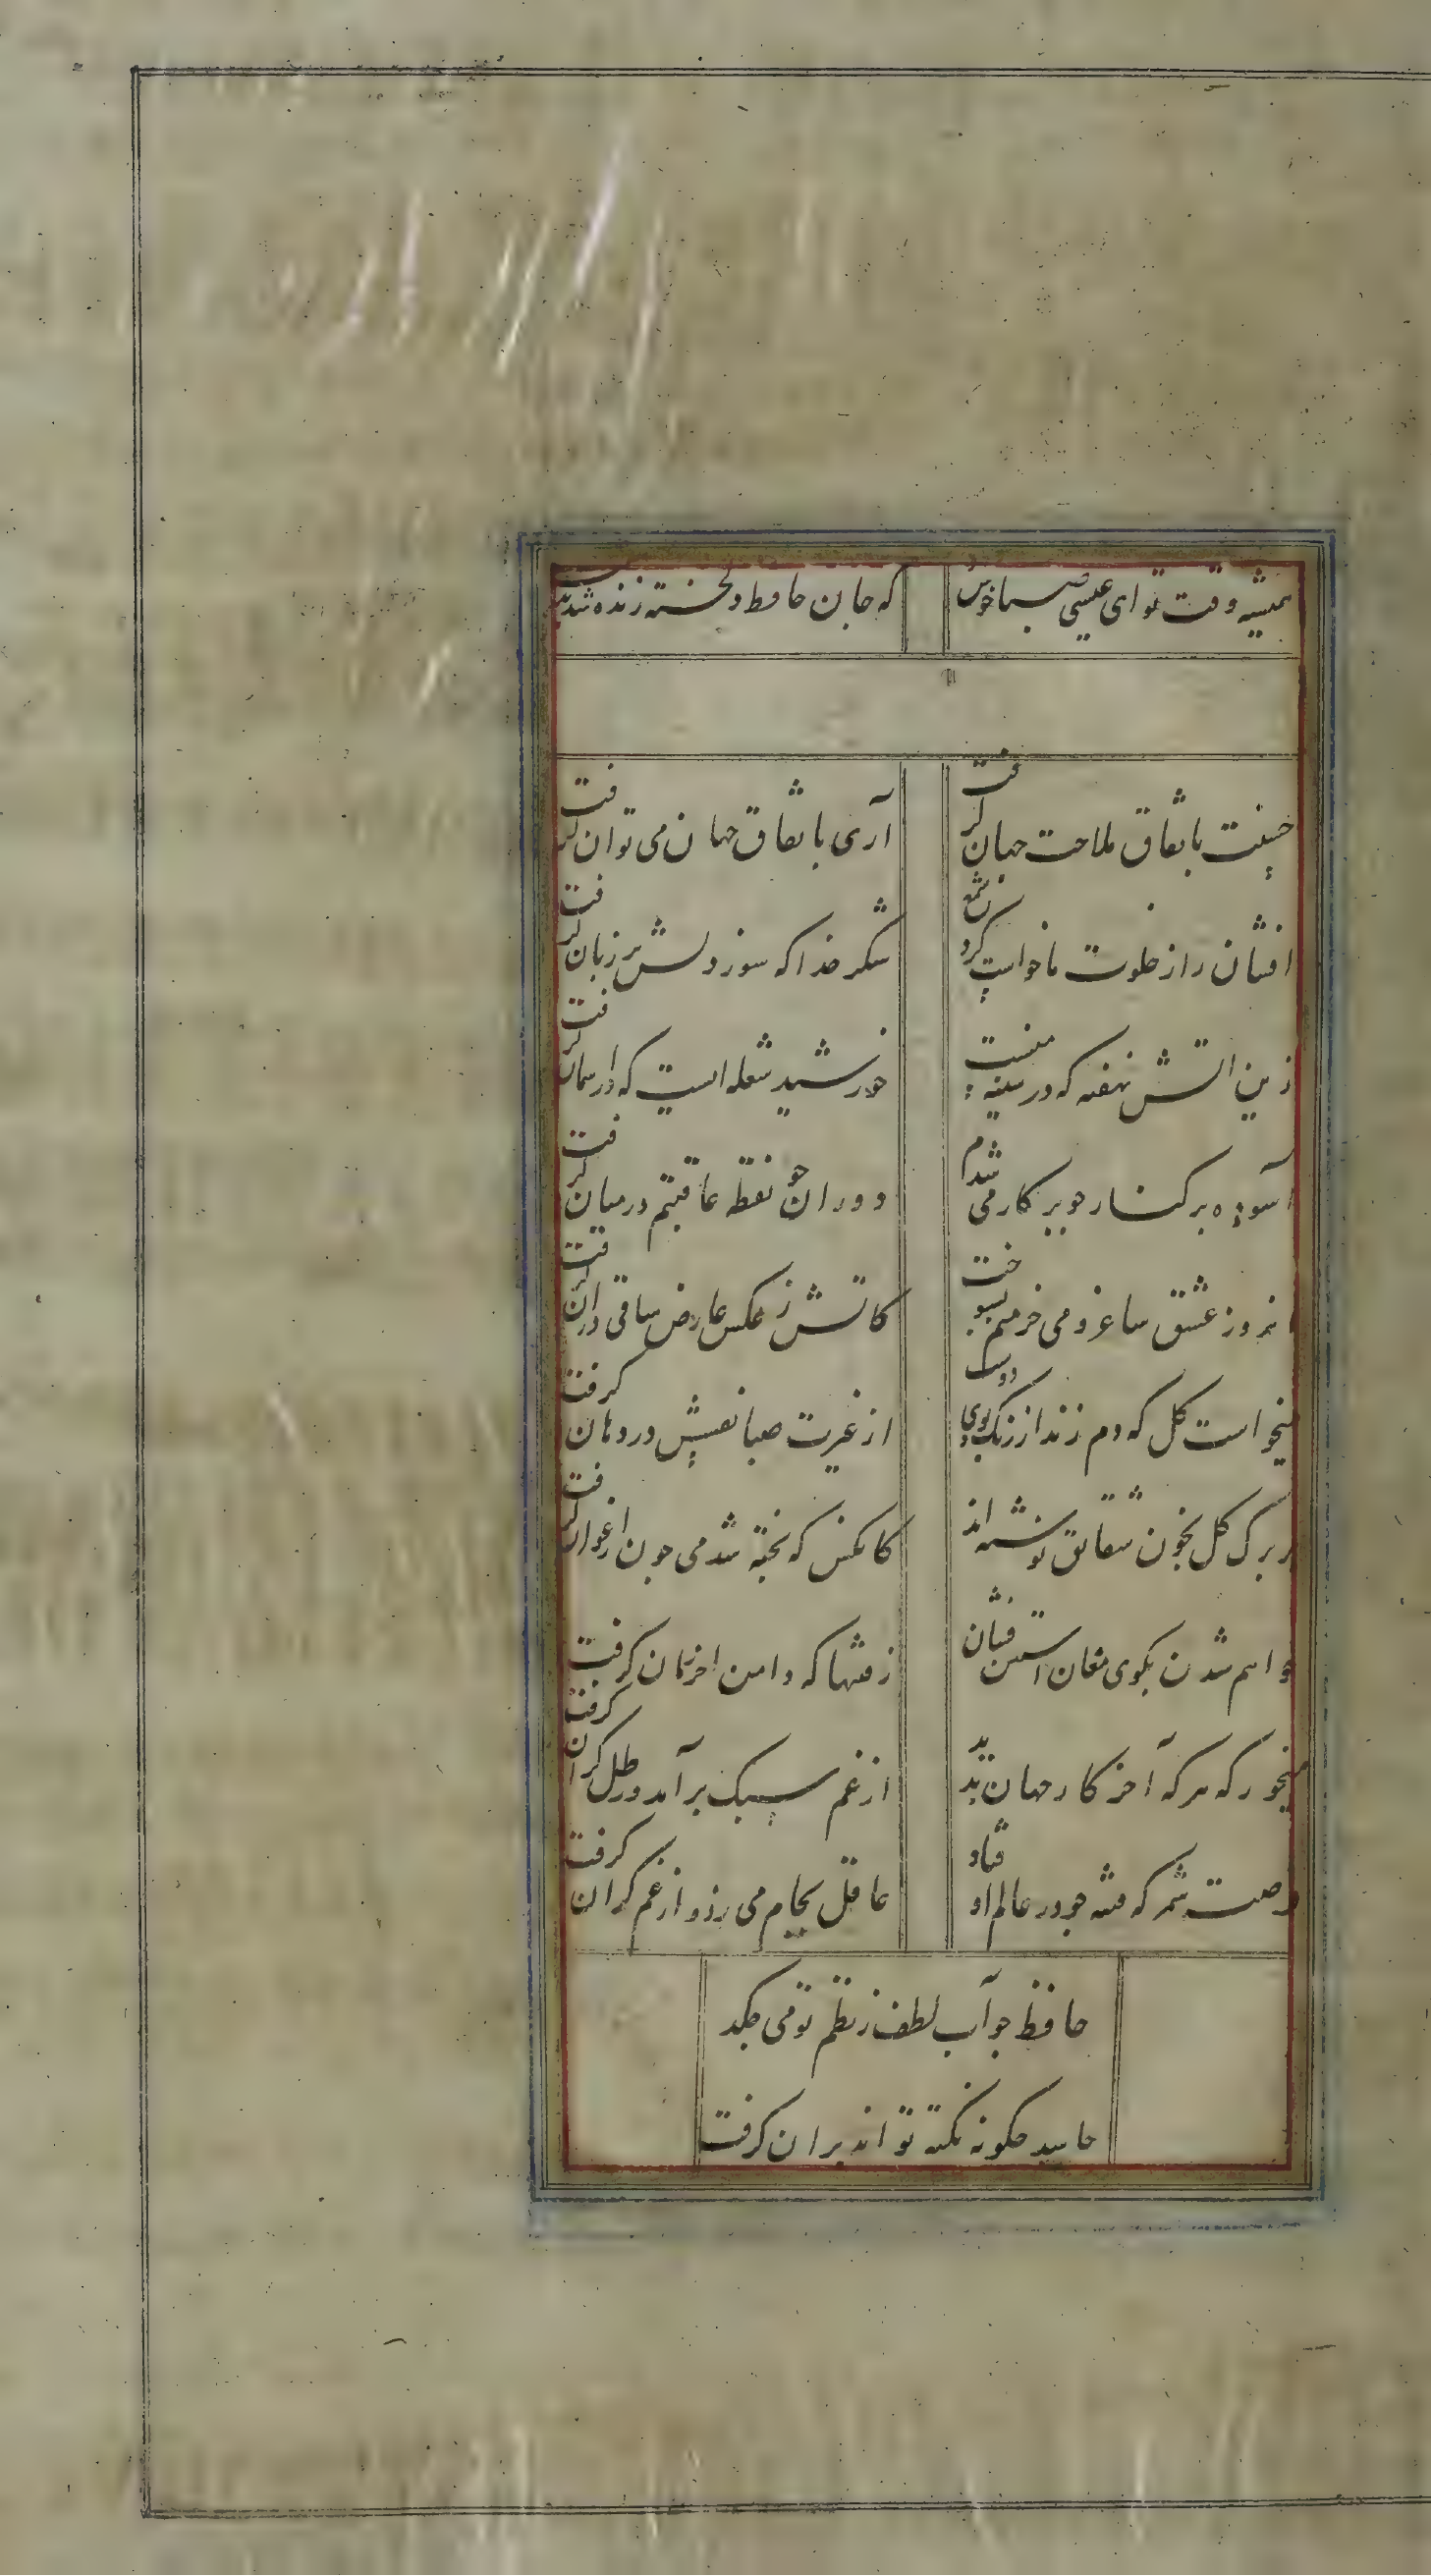 همیشه وقت تو ای عیسی صبا خوش
که جان حافظ دلخسته زنده شد
حسنت باتفاق ملاحت جهان گرفت
آری باتفاق جهان می توان گرفت
افشای راز خلوت ما خواست کرد شمع
شکر خدا که سوز دلش بر زبان گرفت
زین اتش نهفته که در سینه منست
خورشید شعله ایست که در اسمان گرفت
آسوده بر کنار چو پرکار می شدم
دوران چو نقطه عاقبتم در میان گرفت
انروز عشق ساغر و می خرمنم بسوخت
کاتش ز عکس عارض ساقی در ان گرفت
میخواست گل که دم زند از رنگ و بوی دوست
از غیرت صبا نفسش در دهان گرفت
بر برک گل بخون شقایق نوشته اند
کانکس که پخته شد می چون ارغوان گرفت
خواهم شدن بکوی مغان استین فشان
زین فتنها که دامن اخر زمان گرفت
میخور که هر که آخر کار جهان بدید
از غم سبک برآمد و رطل گران گرفت
فرصت شمر که فتنه چو در عالم اوفتاد
عاقل بجام می زد و از غم کران گرفت
حافظ چو آب لطف ز نظم تو می چکد
حاسد چگونه نکته تواند بر ان گرفت